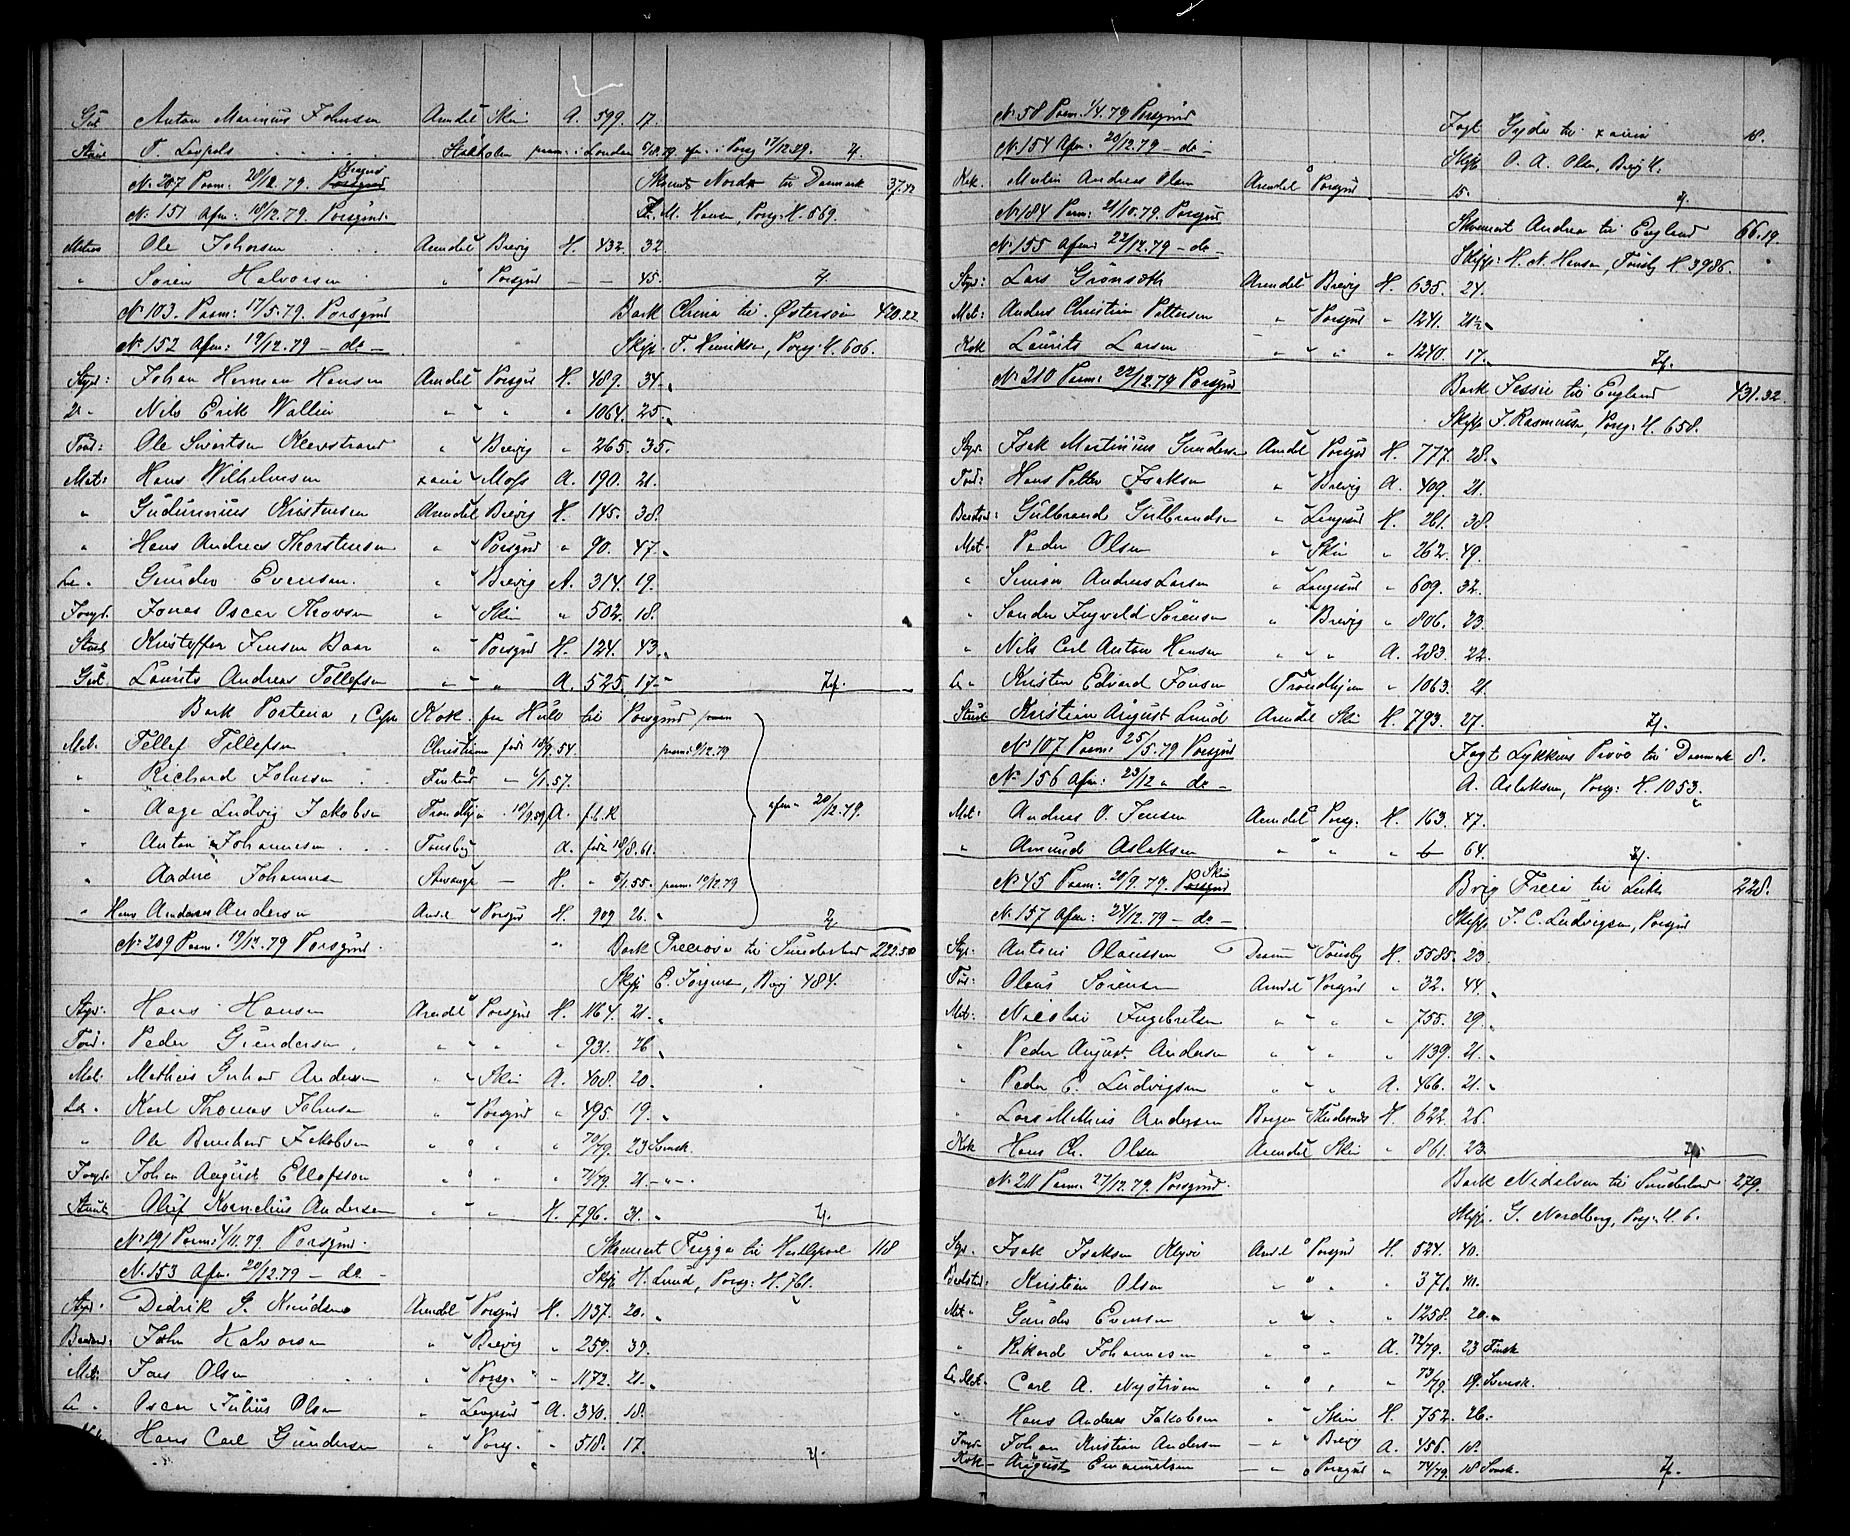 Anton Marinius Johnsen Arendal Skien A. 599. 17.
T. Leopols Stokholm paam: i London
No. 207 Paam: 20/12.79. Porsgrund til Danmark 37.42
No. 151 Afm: 18/12.79. Porsgrund. M. Hansen, Porsg: H. 569.
Matros Ole Johnsen Arendal Brevig H. 432. 32
" Søren Halvorsen " Porsgrd — — 45.
No. 103. Paam: 17/5.79. Porsgrund Bark China til Østersøen 420.22
No. 152 Afm: 19/12.79 – do – Skip. T. Henriksen, Porsg: H. 606.
Styrd: Johan Herman Hansen Arendal Porsgrd H. 489. 34.
2. Nils Erik Wallin " " " 1064. 25.
Ole Sivertsen Klevstrand " Brevig " 265. 35.
Mat: Hans Wilhelmsen xania Moss A. 190. 21.
" Gudmunius Kristensen Arendal Brevig H. 145. 38.
" Hans Andreas Thorstensen " Porsgrd " 90. 47.
Le " Gunder Evensen " Brevig A. 314. 19.
Jongd. Jonas Oscar Thorsen " Skien " 502. 18.
Stuert Kristoffer Jensen Baar " Porsgrd H. 124. 43.
Laurits Andreas Tollefsen " " A. 525. 17.
Bark Postena, Capt. Kok fra Hull til Porsgrund
Mat. Tellef Tellefsen Christiania født 18/9.54. paam: 9/12.79
" Richard Johnsen Finland — 6/1.57.
" Aage Ludvig Jakobsen Trondhjm A. f.b.R afm. 20/12.79.
" Anton Johannesen Tønsberg A. født 18/8.61.
" Andre Johannes Stavanger H. " 5/1.55. paam: 19/12.79
" Hans Andersen Andersen Arendal Porsgrd H. 909 26.
No. 209 Paam. 19/12.79 Porsgrund. Bark Preciosa til Sunderland 222.50
Skip. E. Jørgensen, Brevig 484.
Styr: Hans Hansen Arendal Porsgrd H. 1164. 21.
Peder Gundersen " " " 931. 26
Mat: Mathias Gerhard Andersen " Skien A. 408. 20.
Le " Karl Thomas Johnsen " Porsgrd " 495. 19.
" Ole Bernhard Jakobsen " " " 70/79. 23 Svensk.
Jongd. Johan August Ellefsson " " " 71/79. 21 – " – .
Stuert Oluf Kornelius Andersen " " H. 796. 31
No. 191 Paam: 4/11.79. Porsgrund. Skonnert Frigga til Hartlepool 118
No. 153 Afm. 20/12.79 – do – Skip H. Lund, Porsg: H. 761.
Styr: Dedrik G. Knudsen Arendal Porsgrd H. 1137. 20.
John Halvorsen " Brevig " 259. 39.
Mat: Jens Olsen " Porsg. " 1172. 21.
Le " Oscar Julius Olsen " Langesd A. 340. 18.
Hans Carl Gundersen " Porsg. " 518. 17.
No. 50 Paam: 1/4.79 Porsgrund Jagt Gyda til xania 18.
No. 154 Afm: 20/12.79 – do – Skip. O. A. Olsen, Brevig H.
Kok. Martin Andreas Olsen Arendal Porsgrd — 15.
No. 184 Paam: 21/10.79. Porsgrd Skonnert Andrea til England 66.19.
No. 155 Afm: 22/12.79 – do – Skip: H. N. Hansen, Tønsbg H. 3986.
Styr: Lars Grønseth Arendal Brevig H. 635. 24.
Mat: Anders Christian Pettersen " Porsgrd " 1241. 21½
Kok Laurits Larsen " " " 1240. 17.
No. 210 Paam: 22/12.79 Porsgrd Bark Jessie til England 431.32
Skip. J. Rasmussen, Porsg: H. 658.
Styr. Isak Martinius Gundersen Arendal Porsgrd H. 777. 28.
Hans Petter Isaksen " Brevig A. 409. 21.
Gulbrand Gulbrandsen " Langesd H. 261. 38.
Mat. Peder Olsen " Skien " 262. 49.
" Simon Andreas Larsen " Langesd " 609. 32.
" Sander Ingvald Sørensen " Brevig " 806. 23.
" Nils Carl Anton Hansen " " A. 283. 22.
Le " Kristen Edvard Jonsen Trondhjem " 1063. 21.
Stuert Kristian August Lund Arendal Skien H. 793. 27.
No. 107 Paam: 25/5.79 Porsgrd Jagt Lykkens Prøve til Danmark 8.
No. 156 Afm: 23/12 " do – A. Aslaksen, Porsg: H. 1053.
Mat. Andreas O. Jensen Arendal Porsg. H. 163. 47.
" Amund Aslaksen " " " 6 64.
No. 45 Paam: 20/9.79. Porsgrund Skien Brig Freia til Leith 228.
No. 157 Afm: 24/12.79 – do – Skip. J. C. Ludvigsen, Porsgrd
Styr. Antoni Olaussen Drammen Tønsbg H. 5585. 23.
Olaus Sørensen Arendal Porsgrd " 32. 44.
Mat: Nicolai Ingebretsen " " " 755. 29.
" Peder August Andersen " " " 1139. 21.
" Peder E. Ludvigsen " " A. 466. 21.
" Lars Mathias Andersen Bergen Skudesnes H. 622. 26.
Kok Hans Chr. Olsen Arendal Skien " 861. 23
No. 211 Paam: 27/12.79. Porsgrund. Bark Nidelven til Sunderland 279.
Skip. G. Nordberg, Porsg: H. 6.
Styr. Isak Isaksen Klyve Arendal Porsgrd H. 524. 40.
Kristian Olsen " " " 371. 41.
Mat " Gunder Evensen " " " 1258. 20.
" Rikard Johannesen " " A. 72/79. 23 Finsk
Le Mat. Carl A. Nystrøm " " " 73/79. 19. Svensk.
" Hans Andreas Jakobsen " Skien H. 752. 26.
Jongd. Johan Kristian Andersen " Brevig A. 456. 18.
Kok August Emanuelsen " Porsgrd " 74/79. 18 Svensk.